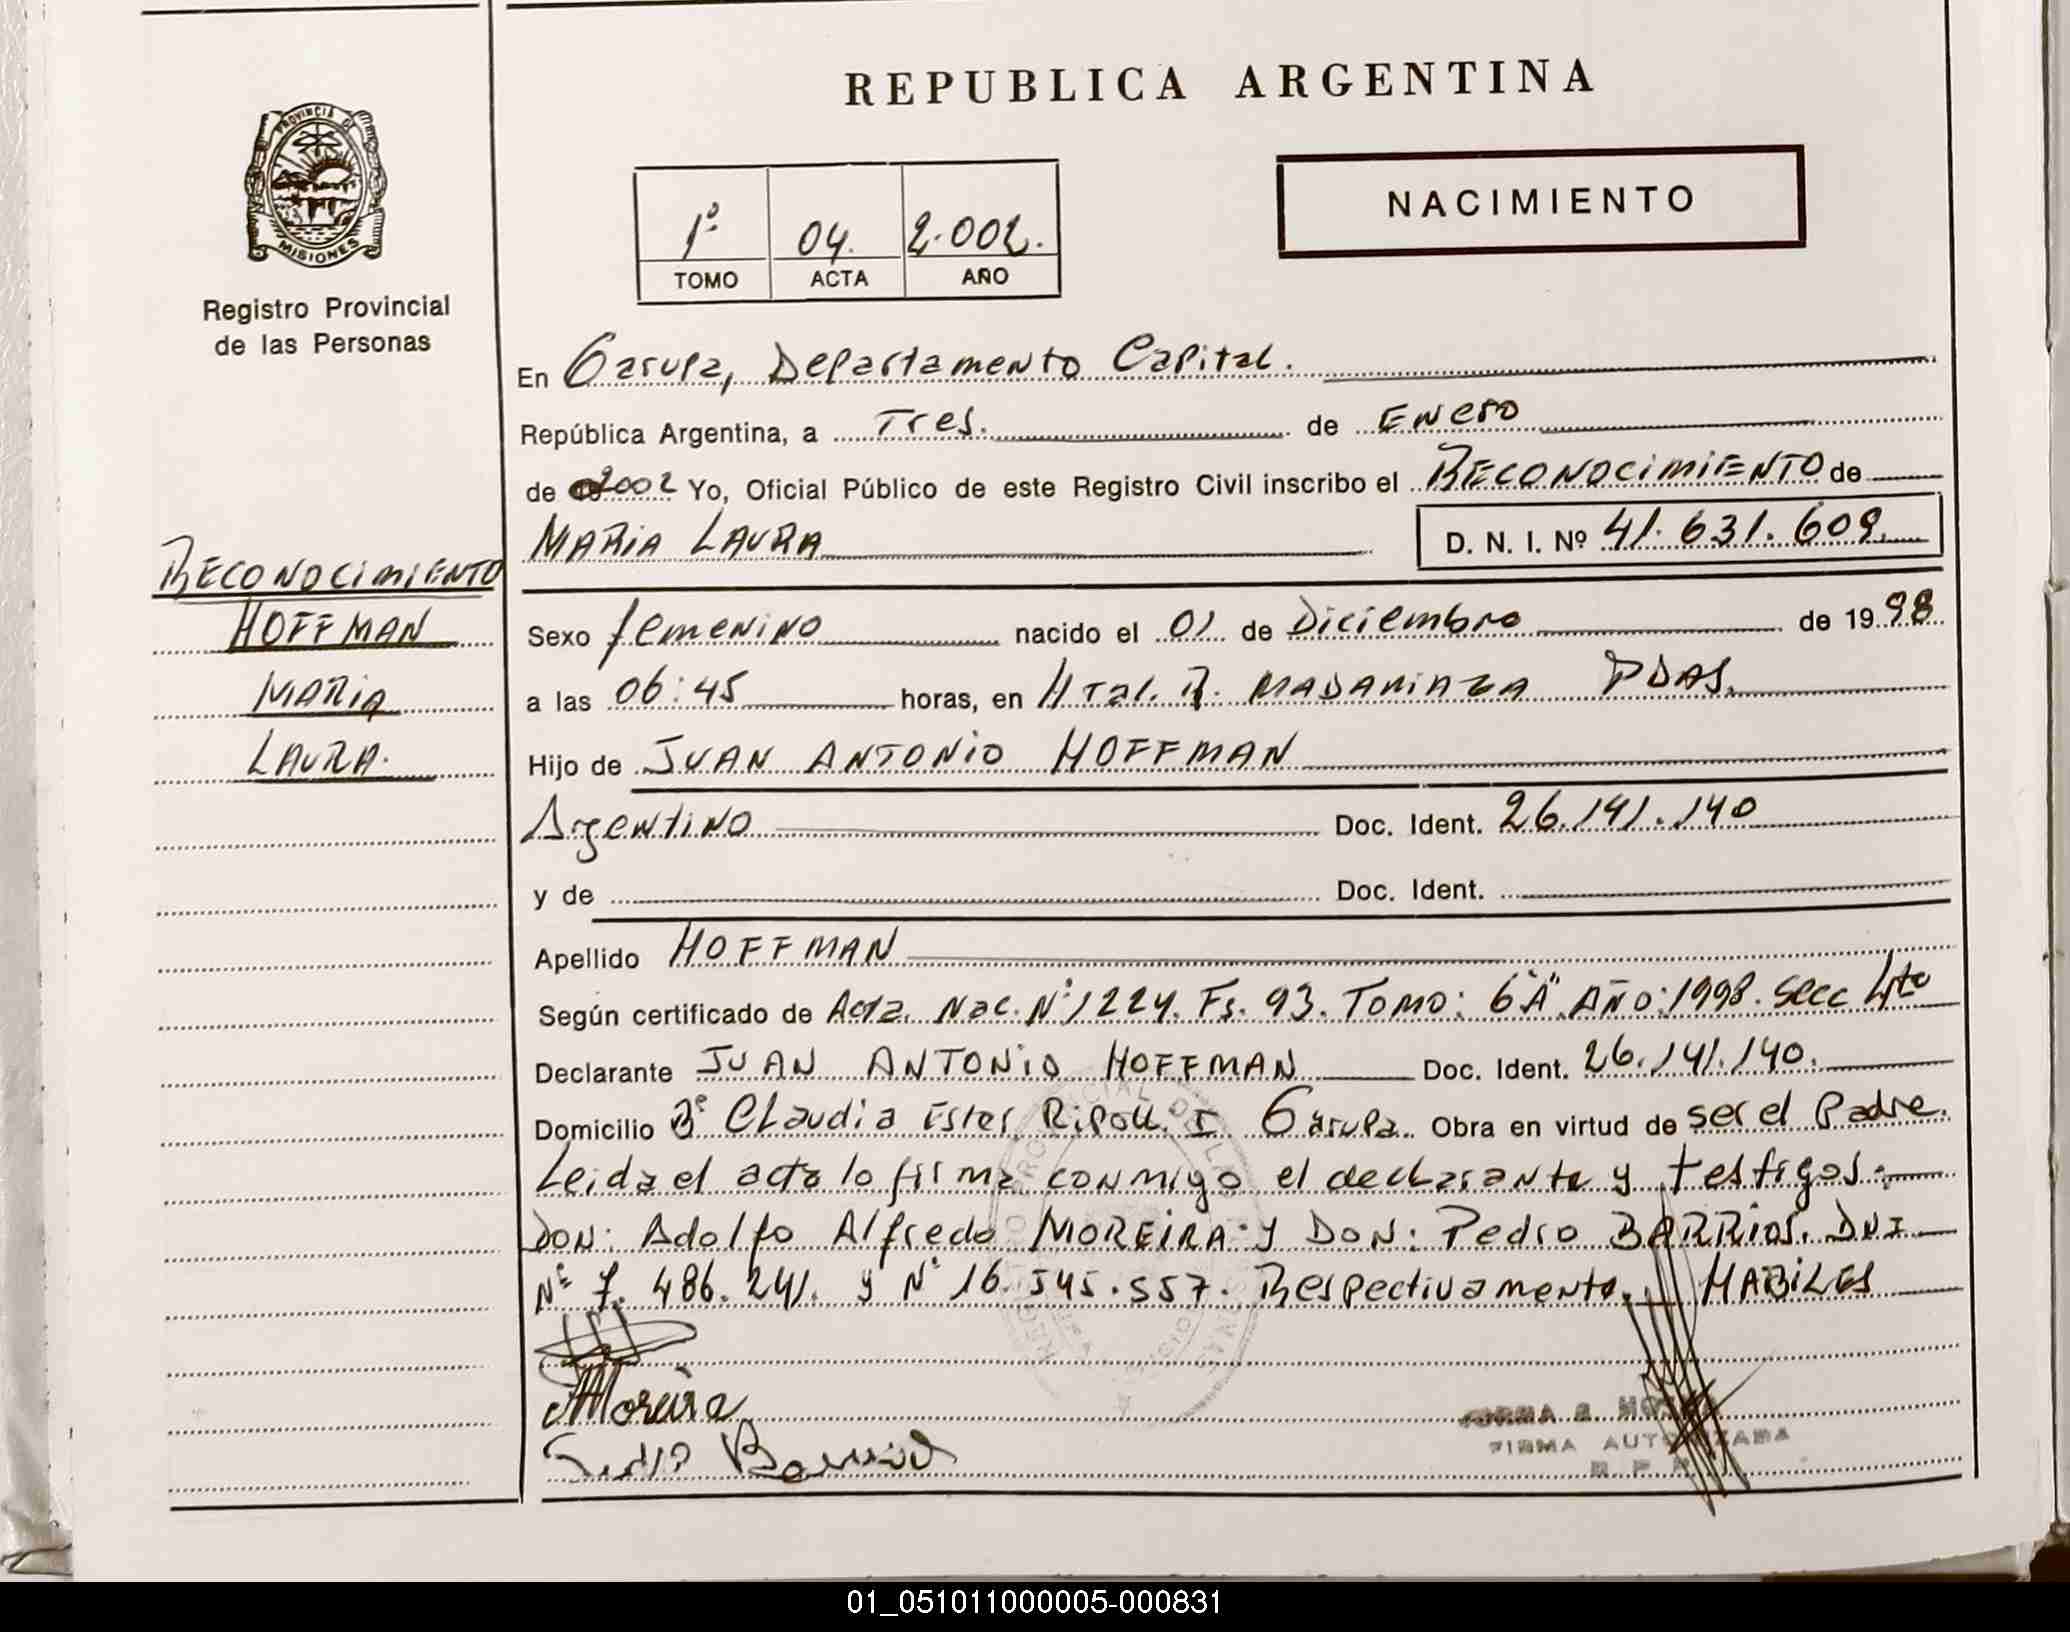 REPUBLICA ARGENTINA
PROVINCIA DE
MISIONES
Registro Provincial
de las Personas
NACIMIENTO
1º 04. 2.002.
TOMO ACTA AÑO
En Garupa, Departamento Capital.
República Argentina, a Tres. de Enero
de 2002 Yo, Oficial Público de este Registro Civil inscribo el RECONOCIMIENTO de
MARIA LAURA D. N. I. Nº 41.631.609.
RECONOCIMIENTO
HOFFMAN
MARIA
LAURA.
Sexo femenino nacido el 01 de Diciembre de 1998
a las 06:45 horas, en Htal. R. MADARIAGA PDAS.
Hijo de JUAN ANTONIO HOFFMAN
Argentino Doc. Ident. 26.141.140
y de Doc. Ident.
Apellido HOFFMAN
Según certificado de Acta. Nac. Nº 1224. Fs. 93. TOMO: 6º"A". AÑO: 1998. Secc 4ta
Declarante JUAN ANTONIO HOFFMAN Doc. Ident. 26.141.140.
Domicilio Bº Claudia Ester Ripoll. I Garupa. Obra en virtud de ser el Padre.
Leida el acta lo firma conmigo el declarante y testigos.
DON: Adolfo Alfredo MOREIRA y DON: Pedro BARRIOS. DNI
Nº 7.486.241. y Nº 16.545.557. Respectivamente. HABILES
AMoreira
Pedro Barrios
FIRMA AUTORIZADA
01_051011000005-000831